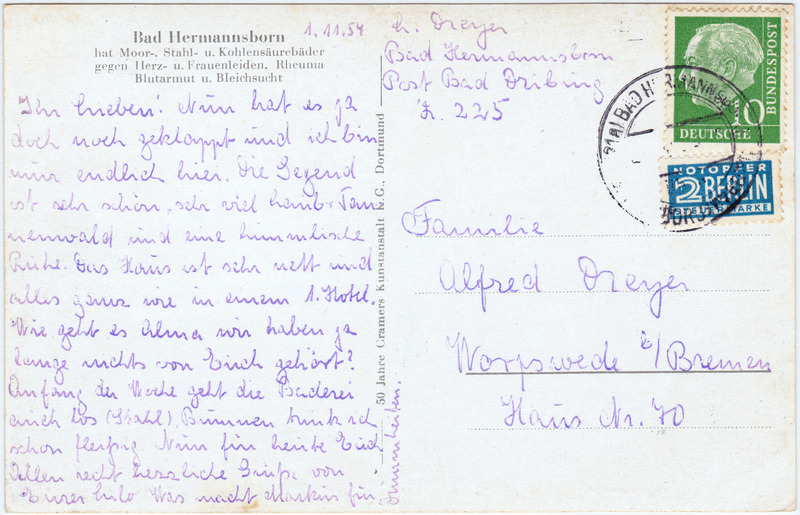 Bad Hermannsborn
hat Moor-, Stahl- u. Kohlensäurebäder
gegen Herz- u. Frauenleiden, Rheuma
Blutarmut u. Bleichsucht
1.11.54
Ihr Lieben! Nun hat es ja
doch noch geklappt und ich bin
nun endlich hier. Die Gegend
ist sehr schön, sehr viel Laub- Tan-
nenwald und eine himmlische
Ruhe. Das Haus ist sehr nett und
alles ganz wie in einem 1. Hotel.
Wie geht es Alma wir haben ja
lange nichts von Euch gehört?
Anfang der Woche geht die Baderei
auch los (Stahl), Brunnen trink ich
schon fleißig Nun für heute Euch
Allen recht herzliche Grüße von
Eurer Lilo Was macht Markus für
Dummheiten.
50 Jahre Cramers Kunstanstalt K.G., Dortmund
L. Dreyer
Bad Hermannsborn
Post Bad Driburg
Z. 225
Familie
Alfred Dreyer
Worpswede b/Bremen
Haus Nr. 70
10
DEUTSCHE
BUNDESPOST
BAD HERMANNSBORN
NOTOPFER
2 BERLIN
STEUERMARKE